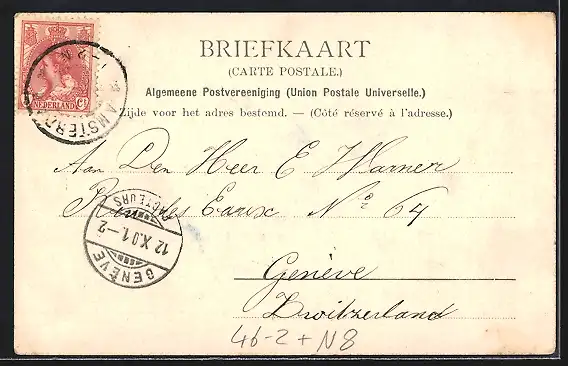 BRIEFKAART
(CARTE POSTALE.)
Algemeene Postvereeniging (Union Postale Universelle.)
Zijde voor het adres bestemd. — (Côté réservé à l'adresse.)
NEDERLAND Ct
AMSTERDAM
Aan Den Heer E Warner
Rue des Eaux No 64
GENÈVE
12 X.01.-2
FACTEURS
Genève
Switzerland
46-2+N8